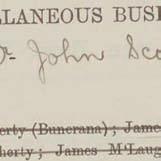 LLANEOUS BUSI
r John Sco
erty (Buncrana); Jame
herty; James M'Laug